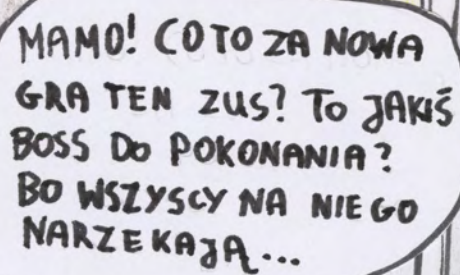 MAMO! CO TO ZA NOWA
GRA TEN ZUS? TO JAKIŚ
BOSS DO POKONANIA?
BO WSZYSCY NA NIEGO
NARZEKAJĄ...